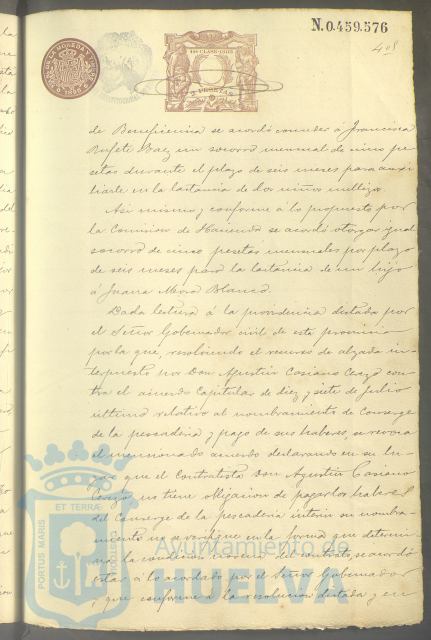 N.0.459.576
408
11ª CLASE-1895
2 PESETAS
1895
de Beneficencia se acordó conceder á Francisca
Rufete Baez un socorro mensual de cinco pe-
setas durante el plazo de seis meses para auxi-
liarle en la lactancia de dos niños mellizos.
Asi mismo y conforme á lo propuesto por
la Comision de Hacienda se acordó otorgar igual
socorro de cinco pesetas mensuales por plazo
de seis meses para la lactancia de un hijo
á Juana Mora Blanco.
Dada lectura á la providencia dictada por
el Señor Gobernador civil de esta provincia
por la que, resolviendo el recurso de alzada in-
terpuesto por Don Agustin Casiano con-
tra el acuerdo Capitular de diez y siete de Julio
último relativo al nombramiento de Conserge
de la pescaderia y pago de sus haberes, se revoca
el mencionado acuerdo declarando en su lu-
gar que el contratista Don Agustin Casiano
no tiene obligacion de pagar los haberes
del Conserge de la pescaderia interin su nombra-
miento no se verifique en la forma que determi-
na la condicion del contrato, se acordó
estar á lo acordado por el Señor Gobernador
y que conforme á la resolucion dictada y en
PORTUS MARIS ET TERRÆ CUSTODIA
Ayuntamiento de
HUELVA